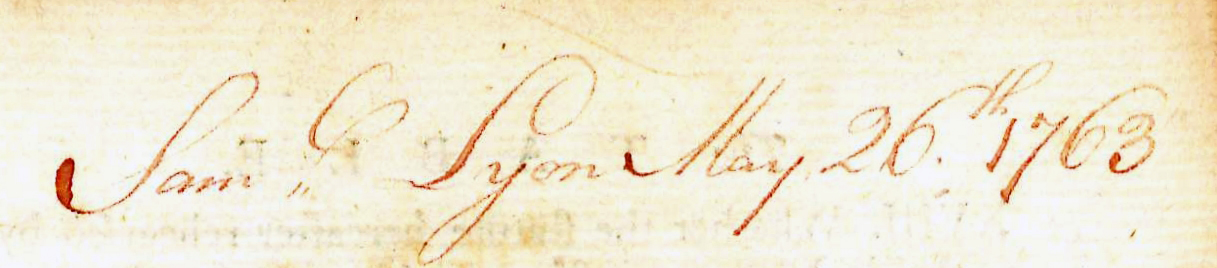 Sam.l Lyon May 26.th 1763